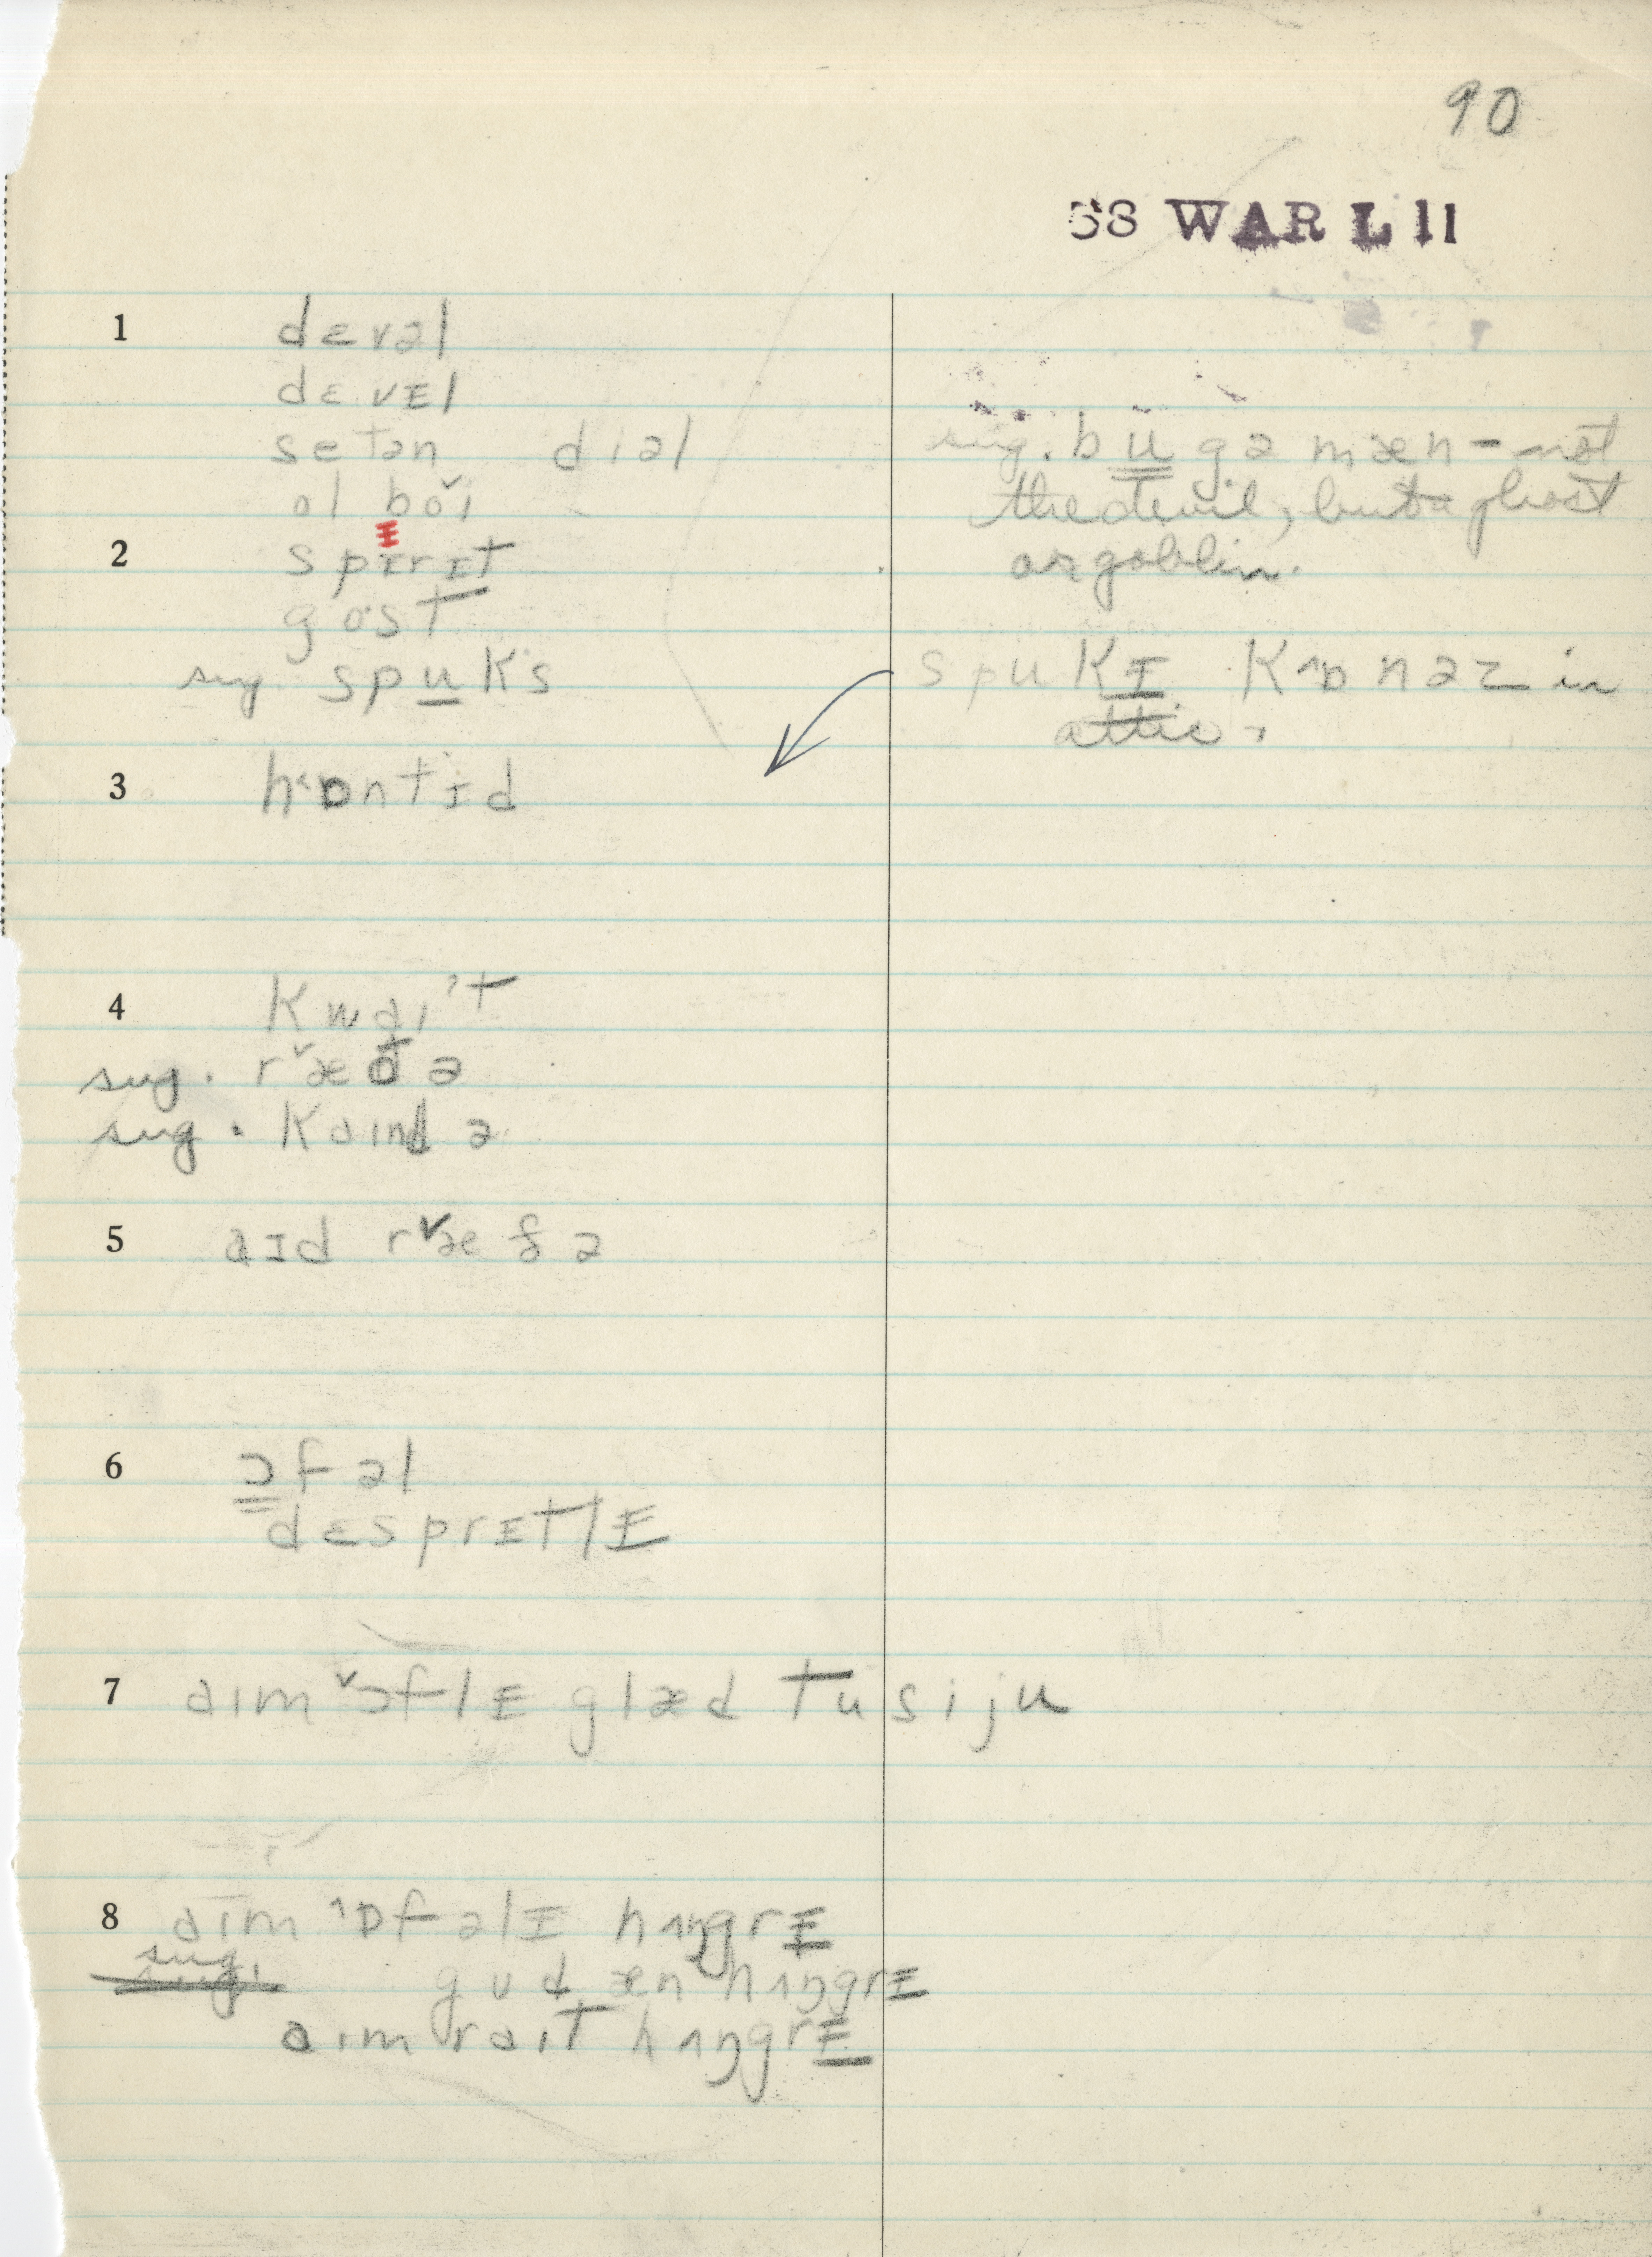 90
58 WAR L 11
1 dɛvəl
dɛvɪl
setən diəl
ol bɔ̌i
sug. bu̳gə mæn - not
the devil, but a ghost
or goblin.
2 spɪrɪt
ɪ
gost
sug. spu̲ks
spukɪ̲ k^ɒnəz in
attic.
3 h‹ɒntɪd
4 kwaɪ't
sug. r˅æðə
sug. kaɪndə
5 aɪd r˅æðə
6 ɔ̳fəl
dɛsprɪtlɪ̲
7 aɪm ˅ɔflɪ glæd tu si ju
8 aɪm ^ɒfəlɪ hʌŋgrɪ̲
sug.
gud æn hʌŋgrɪ̲
aɪm raɪt hʌŋgrɪ̲